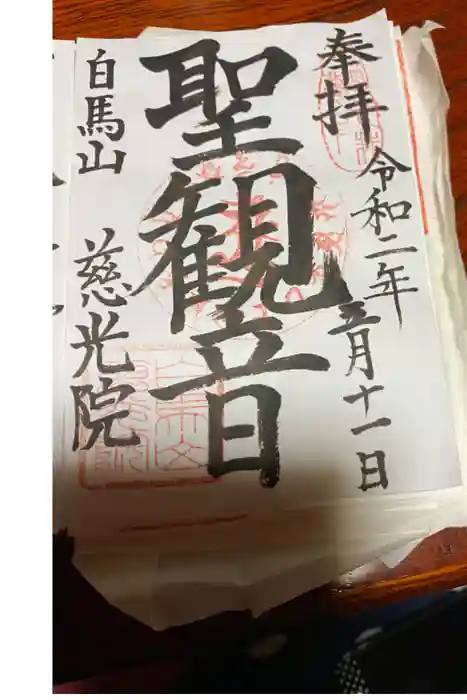 奉拝
令和二年五月十一日
聖観音
白馬山 慈光院